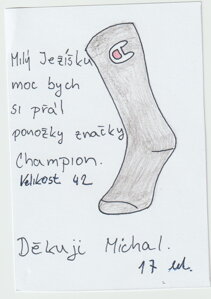 Milý Ježíšku
moc bych
si přál
ponožky značky
Champion.
Velikost 42
Děkuji Michal.
17 let.